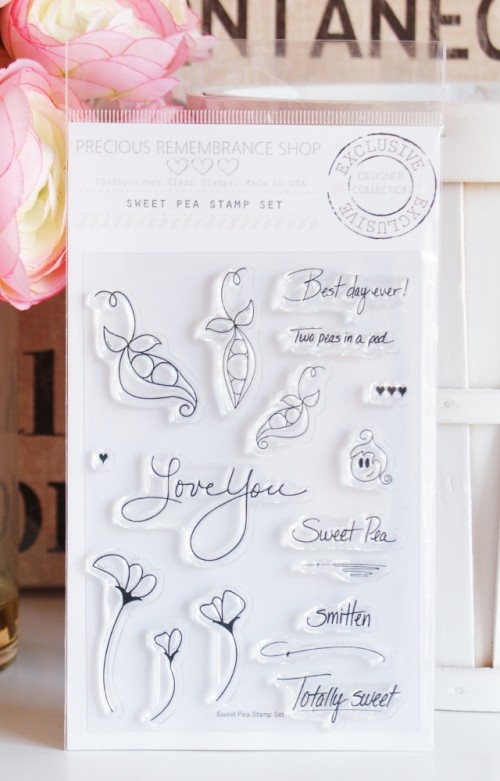 NTANEO
PRECIOUS REMEMBRANCE SHOP
Photopolymer Clear Stamps. Made in USA
SWEET PEA STAMP SET
EXCLUSIVE
DESIGNER
COLLECTION
EXCLUSIVE
Best day ever!
Two peas in a pod
Love You
Sweet Pea
Smitten
Totally sweet
Sweet Pea Stamp Set